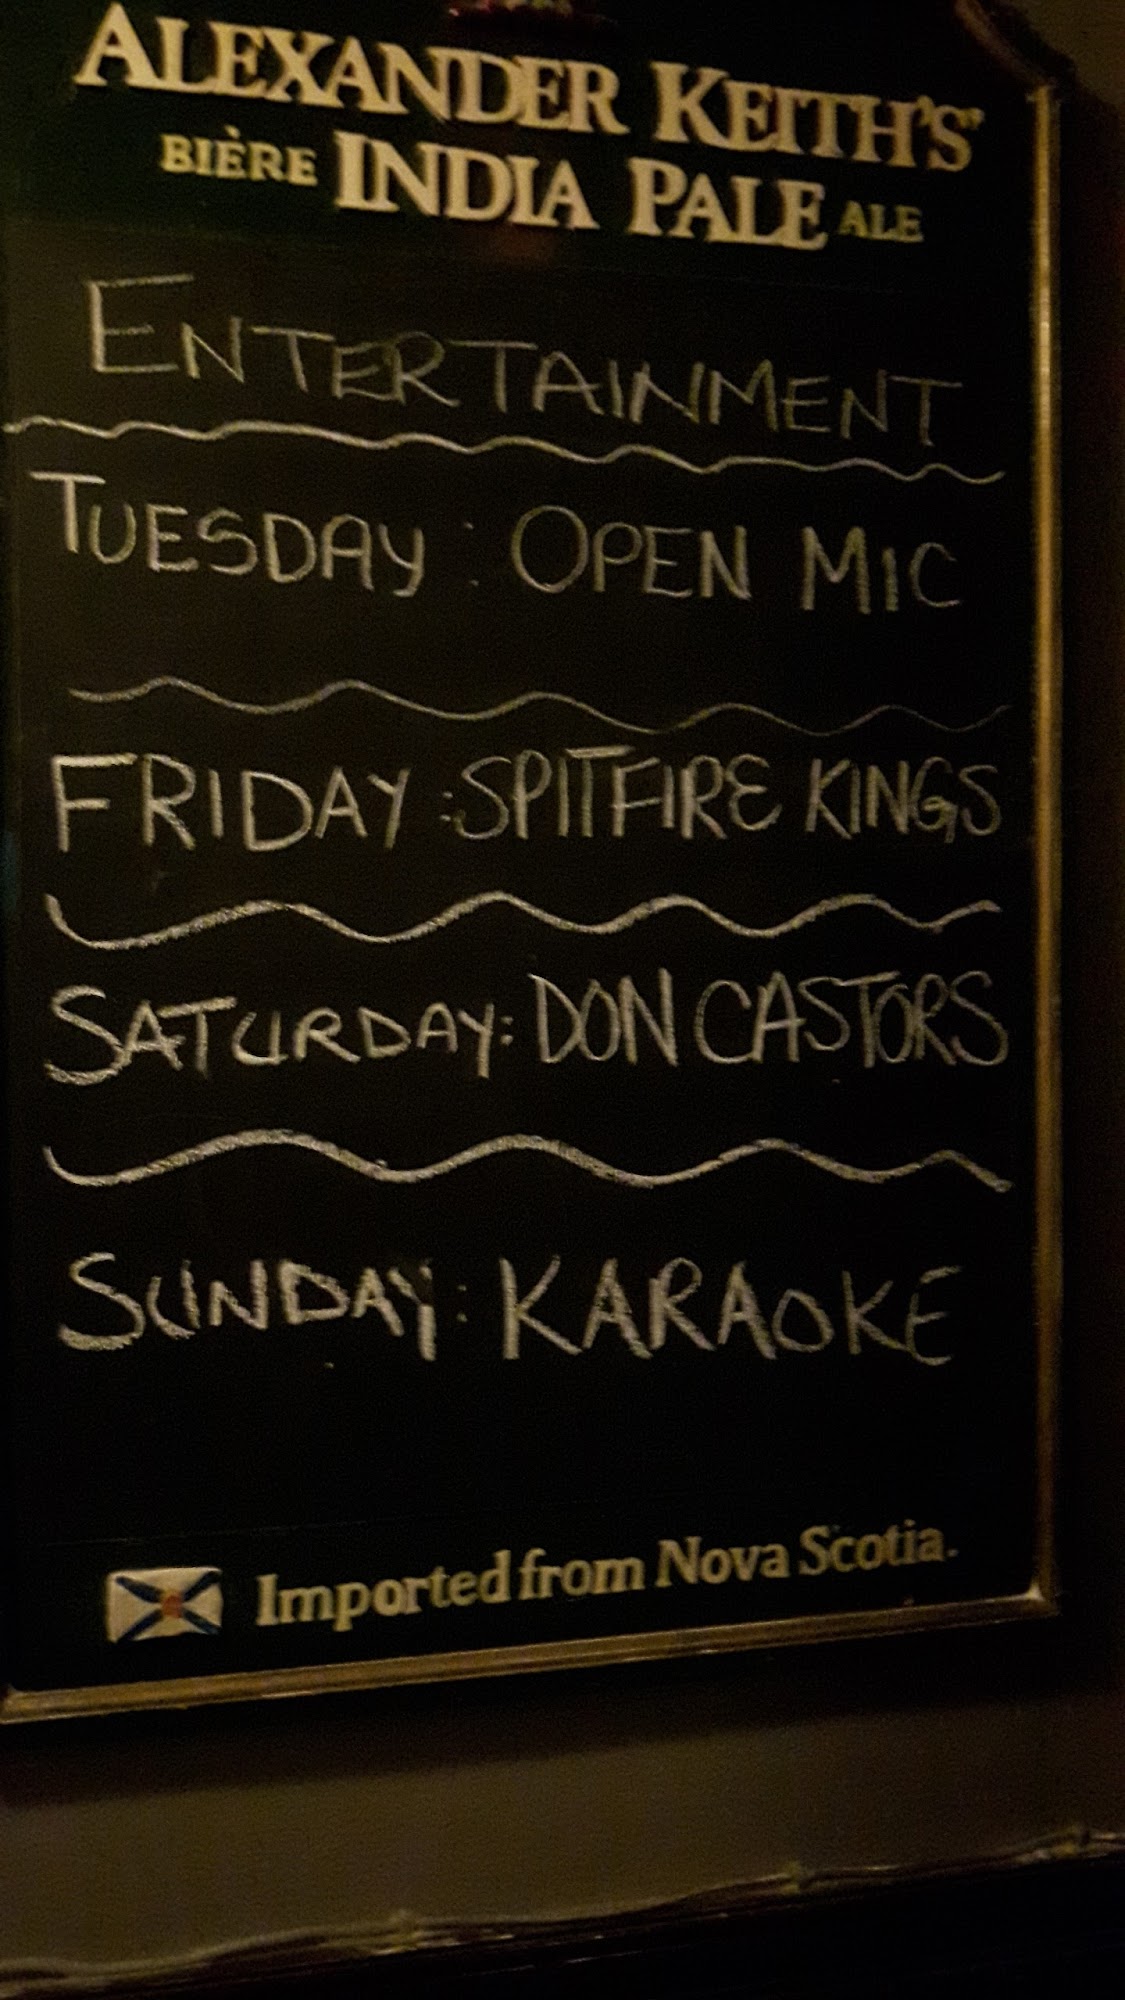 ALEXANDER KEITH'S
BIÈRE INDIA PALE ALE
ENTERTAINMENT
TUESDAY: OPEN MIC
FRIDAY: SPITFIRE KINGS
SATURDAY: DON CASTORS
SUNDAY: KARAOKE
Imported from Nova Scotia.